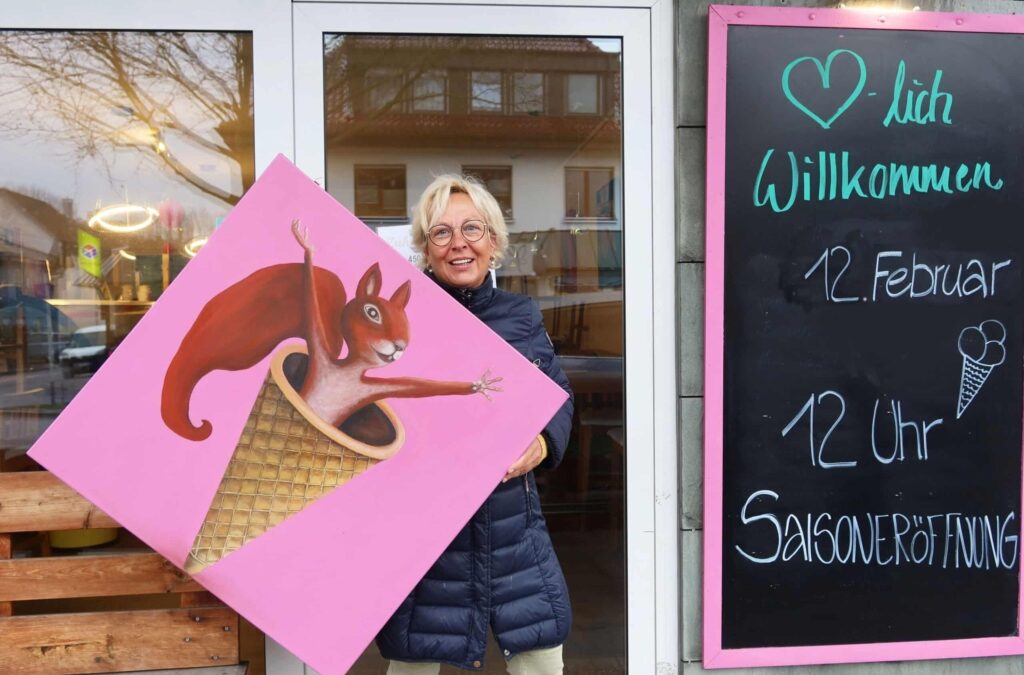 ♡-lich
Willkommen
12. Februar
12 Uhr
SAISONERÖFFNUNG